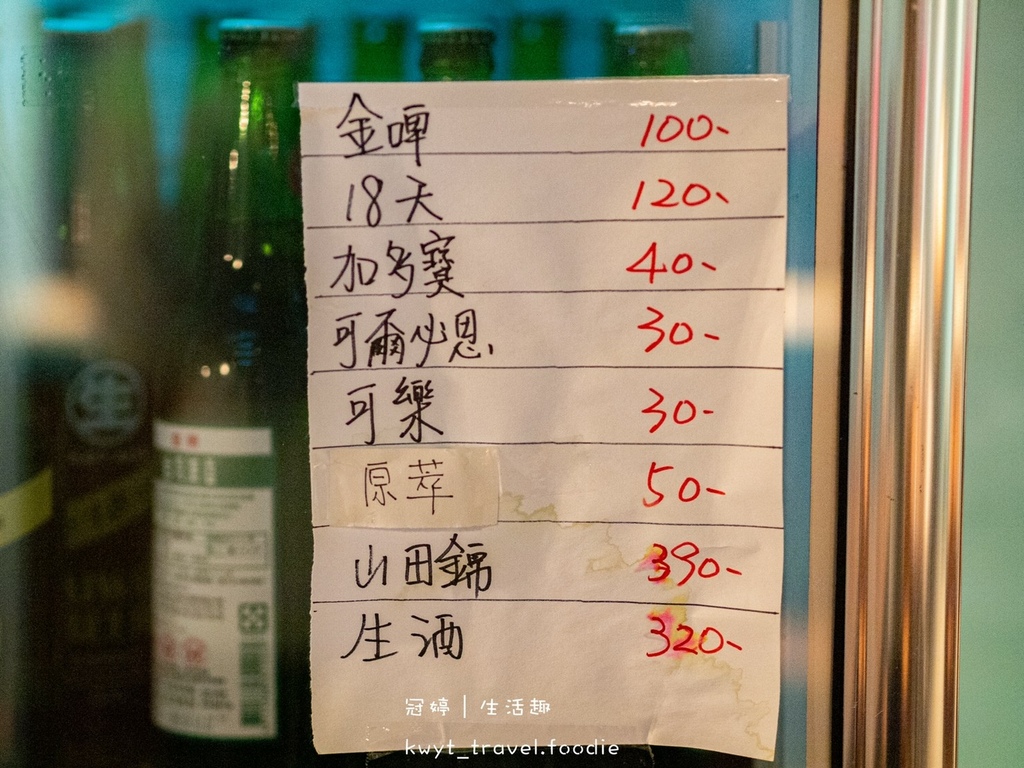 金啤 100-
18天 120-
加多寶 40-
可爾必思 30-
可樂 30-
原萃 50-
山田錦 390-
生酒 320-
冠婷｜生活趣
kwyt_travel.foodie